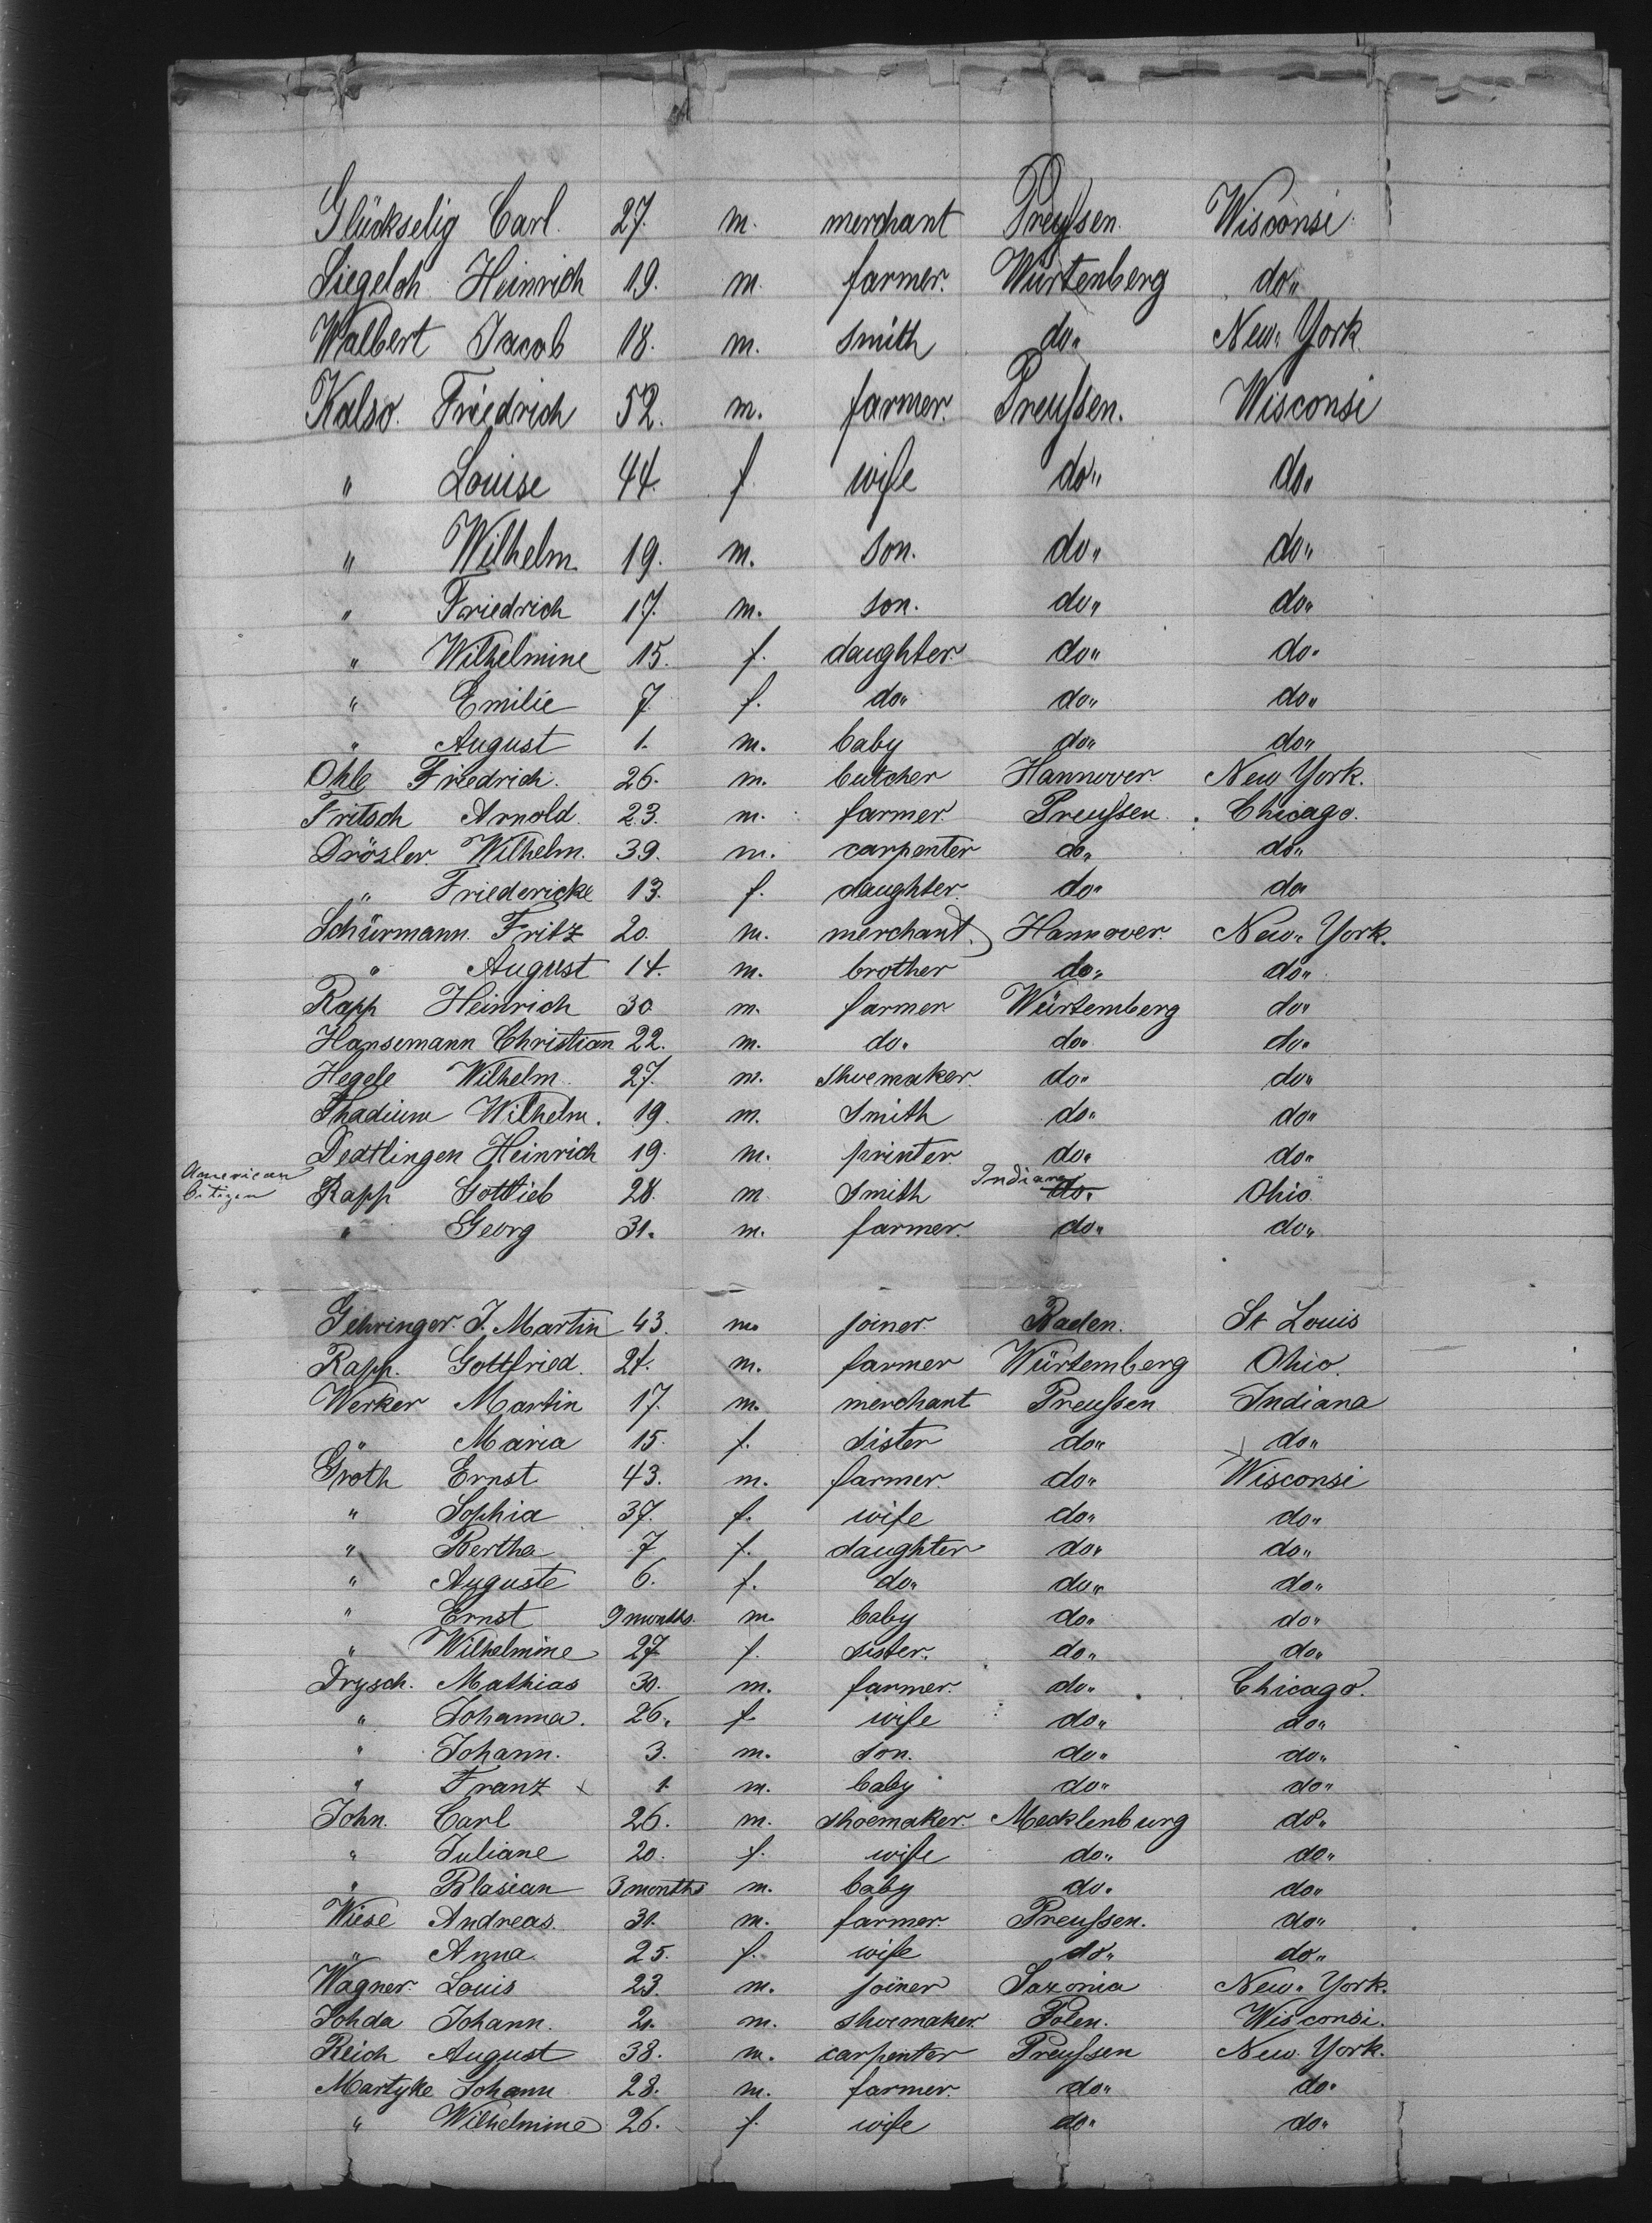 Glückselig Carl. 27. m. merchant Preussen. Wisconsi
Siegeloh Heinrich 19. m. farmer. Würtenberg do"
Walbert Jacob 18. m. smith do" New York.
Kalso. Friedrich 52. m. farmer. Preussen. Wisconsi
" Louise 44. f wife do" do"
" Wilhelm 19. m. son. do" do"
" Friedrich 17. m. son. do" do"
" Wilhelmine 15. f. daughter. do" do"
" Emilie 7. f. do" do" do"
" August 1. m. baby do" do"
Ohle Friedrich. 26. m. butcher Hannover. New York.
Fritsch Arnold. 23. m. farmer. Preussen. Chicago.
Drösler. Wilhelm. 39. m. carpenter do" do"
" Friedericke 13. f. daughter. do" do"
Schürmann. Fritz 20. m. merchant. Hannover. New York.
" August 14. m. brother do" do"
Rapp Heinrich 30 m. farmer Würtemberg do"
Hansemann Christian 22. m. do. do" do"
Hegele Wilhelm. 27. m. shoemaker. do" do"
Thadium Wilhelm. 19. m. Smith do" do"
Dettlingen Heinrich 19. m. printer. do" do"
American Citizen Rapp Gottlieb 28. m Smith Indiana do. Ohio.
" Georg 31. m. farmer. do" do"
Gehringer. J. Martin 43. m. joiner. Baden. St Louis
Rapp. Gottfried. 24. m. farmer Würtemberg Ohio.
Werker Martin 17. m. merchant Preussen Indiana
" Maria 15. f. Sister do" do"
Groth Ernst 43. m. farmer. do" Wisconsi
" Sophia 37. f. wife do" do"
" Bertha 7 f. daughter do" do"
" Auguste 6. f. do" do" do"
" Ernst 9 months. m. baby do" do"
" Wilhelmine 27 f. sister. do" do"
Drysch. Mathias 30. m. farmer. do" Chicago.
" Johanna. 26. f wife do" do"
" Johann. 3. m. son. do" do"
" Franz x 1. m. baby do" do"
John. Carl 26. m. shoemaker. Mecklenburg do"
" Juliane 20. f. wife do" do"
" Blasian 3 months m. baby do" do"
Wiese Andreas. 31. m. farmer. Preussen. do"
" Anna. 25. f. wife do" do"
Wagner Louis 23. m. joiner Saxonia New York.
Johda Johann. 21. m. shoemaker. Polen. Wisconsi.
Reich August 38. m. carpenter Preussen New York.
Martyke Johann 28. m. farmer. do" do"
" Wilhelmine 26. f. wife do" do"